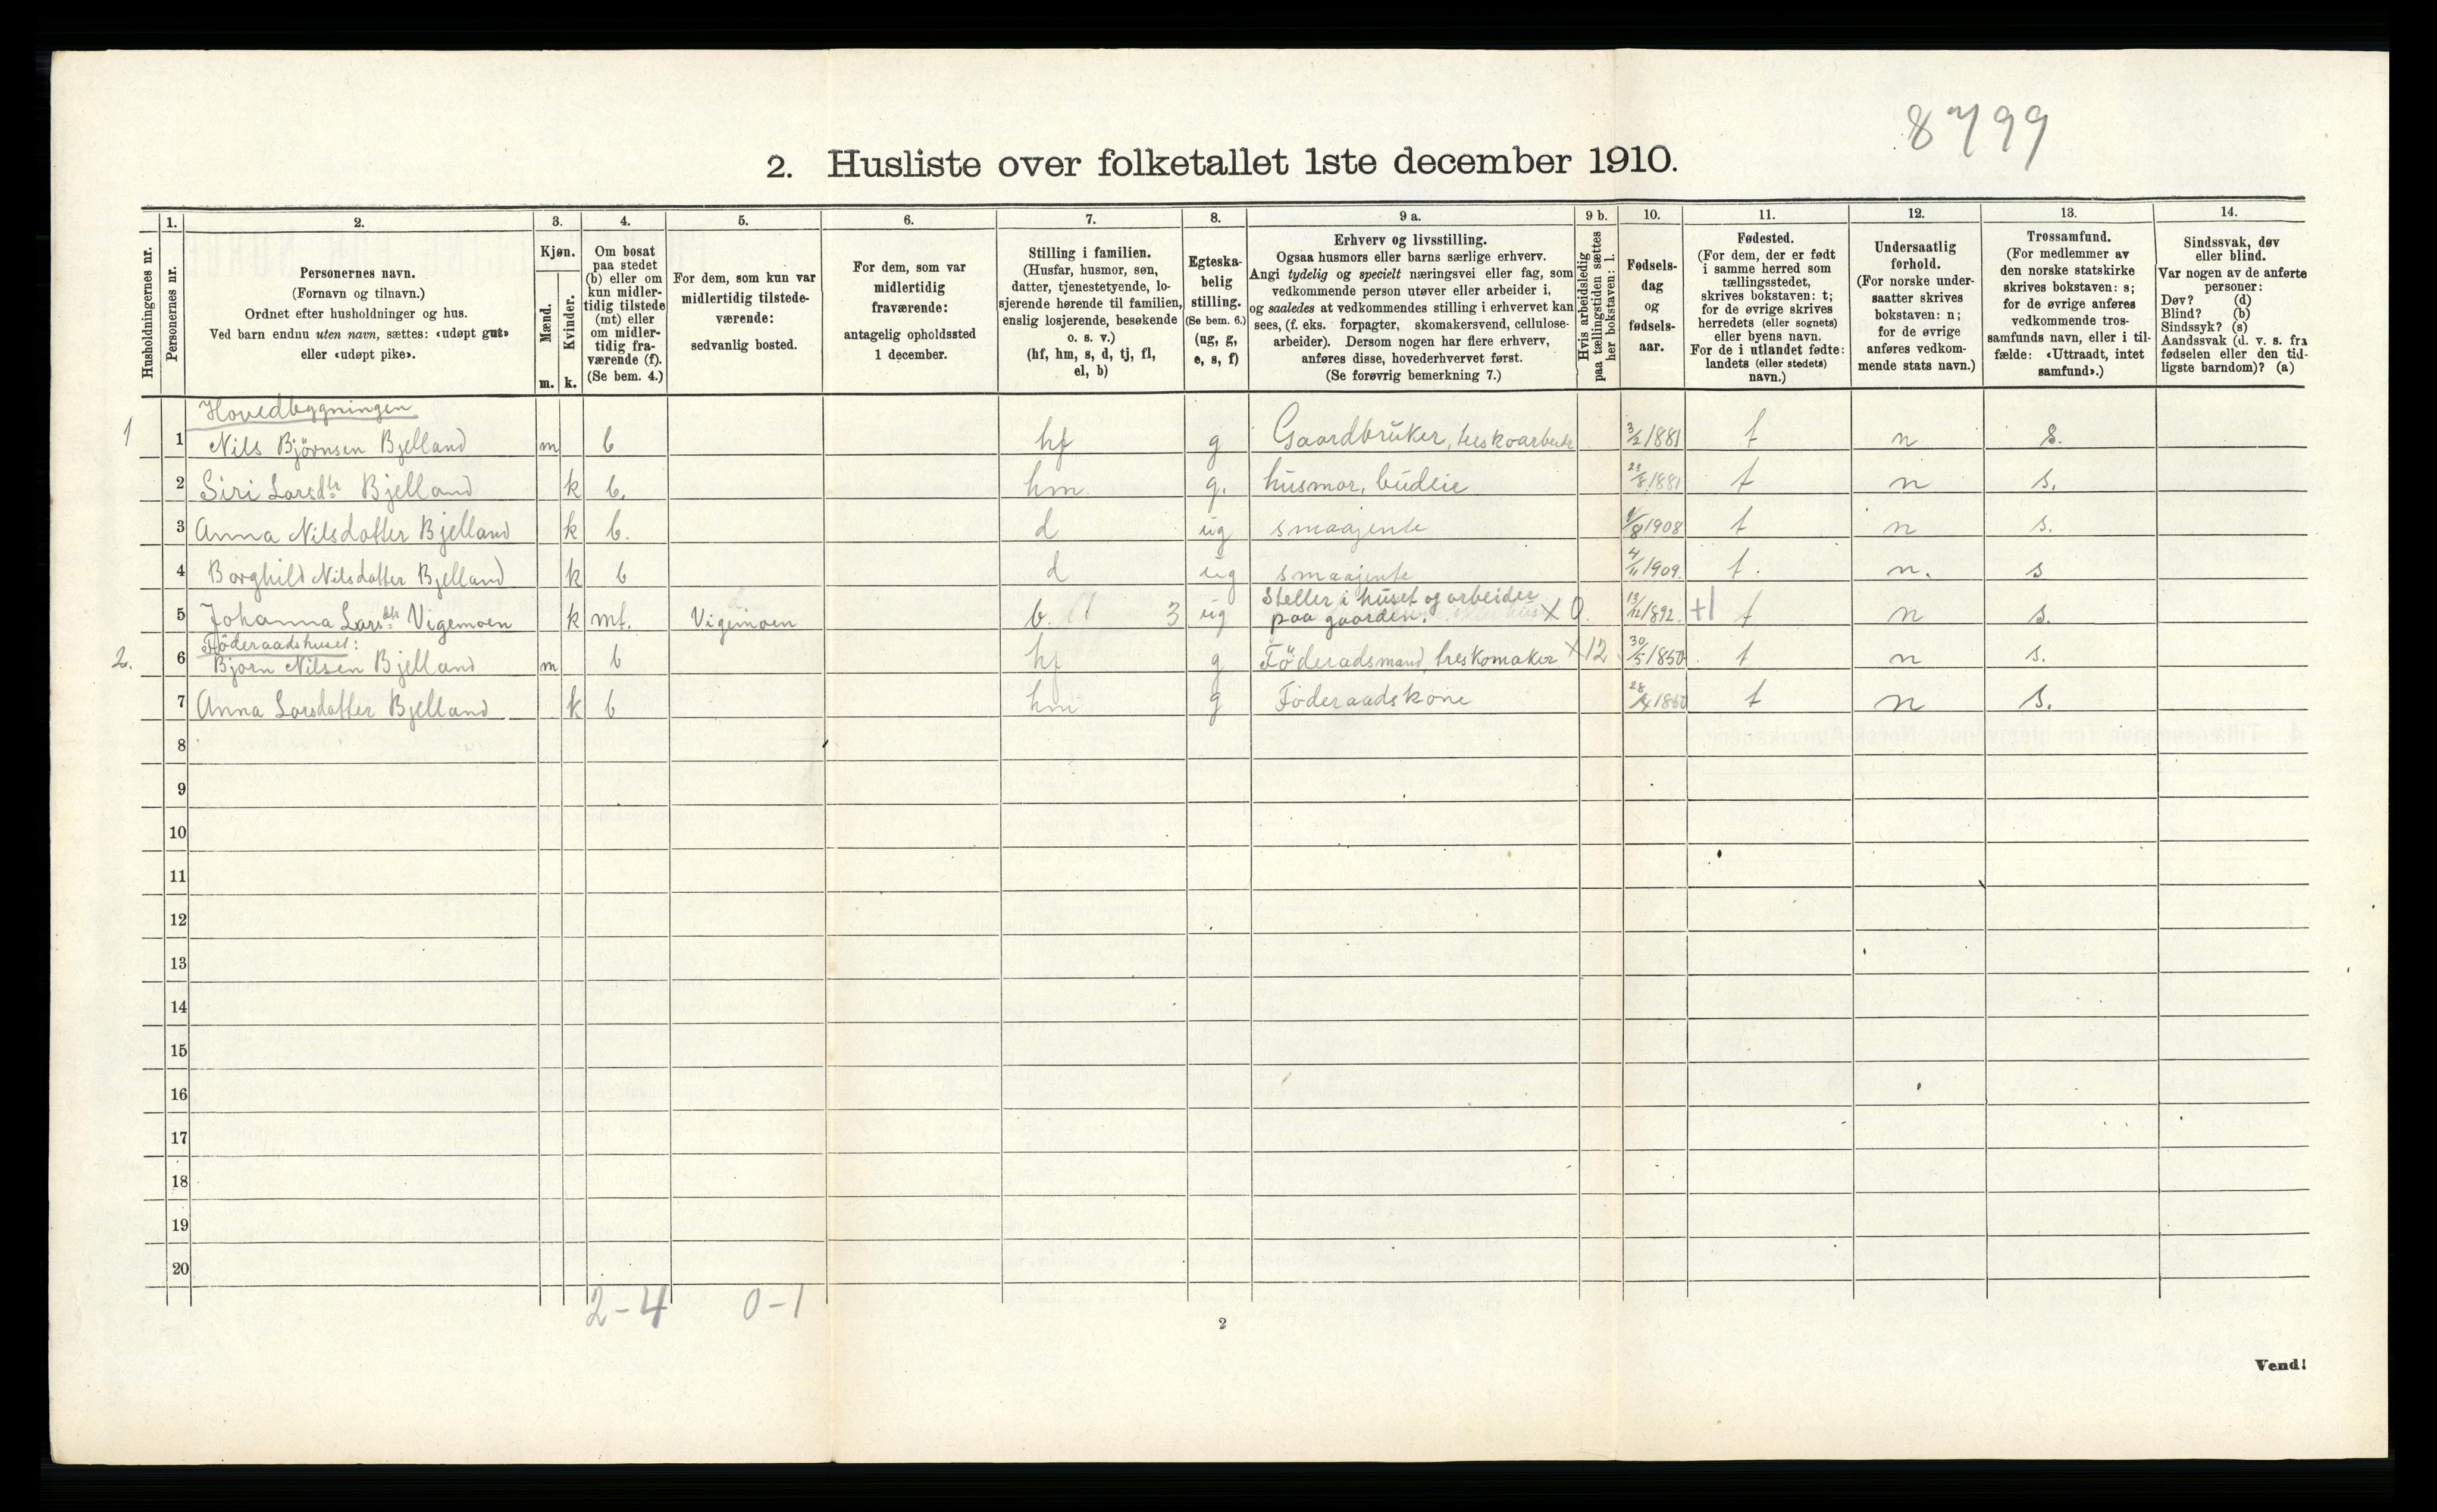 8799
2. Husliste over folketallet 1ste december 1910.
Husholdningernes nr.
1.
Personernes nr.
2.
Personernes navn.
(Fornavn og tilnavn.)
Ordnet efter husholdninger og hus.
Ved barn endnu uten navn, sættes: «udøpt gut»
eller «udøpt pike».
3.
Kjøn.
Mænd.
Kvinder.
m. k.
4.
Om bosat
paa stedet
(b) eller om
kun midler-
tidig tilstede
(mt) eller
om midler-
tidig fra-
værende (f).
(Se bem. 4.)
5.
For dem, som kun var
midlertidig tilstede-
værende:
sedvanlig bosted.
6.
For dem, som var
midlertidig
fraværende:
antagelig opholdssted
1 december.
7.
Stilling i familien.
(Husfar, husmor, søn,
datter, tjenestetyende, lo-
sjerende hørende til familien,
enslig losjerende, besøkende
o. s. v.)
(hf, hm, s, d, tj, fl,
el, b)
8.
Egteska-
belig
stilling.
(Se bem. 6.)
(ug, g,
e, s, f)
9 a.
Erhverv og livsstilling.
Ogsaa husmors eller barns særlige erhverv.
Angi tydelig og specielt næringsvei eller fag, som
vedkommende person utøver eller arbeider i,
og saaledes at vedkommendes stilling i erhvervet kan
sees, (f. eks. forpagter, skomakersvend, cellulose-
arbeider). Dersom nogen har flere erhverv,
anføres disse, hovederhvervet først.
(Se forøvrig bemerkning 7.)
9 b.
Hvis arbeidsledig
paa tællingstiden sættes
her bokstaven: l.
10.
Fødsels-
dag
og
fødsels-
aar.
11.
Fødested.
(For dem, der er født
i samme herred som
tællingsstedet,
skrives bokstaven: t;
for de øvrige skrives
herredets (eller sognets)
eller byens navn.
For de i utlandet fødte:
landets (eller stedets)
navn.)
12.
Undersaatlig
forhold.
(For norske under-
saatter skrives
bokstaven: n;
for de øvrige
anføres vedkom-
mende stats navn.)
13.
Trossamfund.
(For medlemmer av
den norske statskirke
skrives bokstaven: s;
for de øvrige anføres
vedkommende tros-
samfunds navn, eller i til-
fælde: «Uttraadt, intet
samfund».)
14.
Sindssvak, døv
eller blind.
Var nogen av de anførte
personer:
Døv? (d)
Blind? (b)
Sindssyk? (s)
Aandssvak (d. v. s. fra
fødselen eller den tid-
ligste barndom)? (a)
Hovedbygningen
1 1 Nils Björnsen Bjelland m b hf g Gaardbruker, treskoarbeide 3/2 1881 t n s.
2 Siri Larsdtr Bjelland k b. hm g. husmor, budeie 23/8 1881 t n s.
3 Anna Nilsdatter Bjelland k b. d ug smaajente 1/8 1908 t n s.
4 Borghild Nilsdatter Bjelland k b d ug smaajente 4/11 1909. t. n. s
Steller i huset og arbeider
5 Johanna Larsdtr Vigemoen k mt. Vigemoen b. 3 ug paa gaarden. x 0 13/12 1892. +1 t n s.
Föderaadshuset:
2. 6 Bjorn Nilsen Bjelland m b hf g Föderadsmand, treskomaker x 12 30/5 1850 t n s.
7 Anna Larsdatter Bjelland k b hm g Föderaadskone t n s.
8
9
10
11
12
13
14
15
16
17
18
19
20
2-4 0-1
2
Vend!